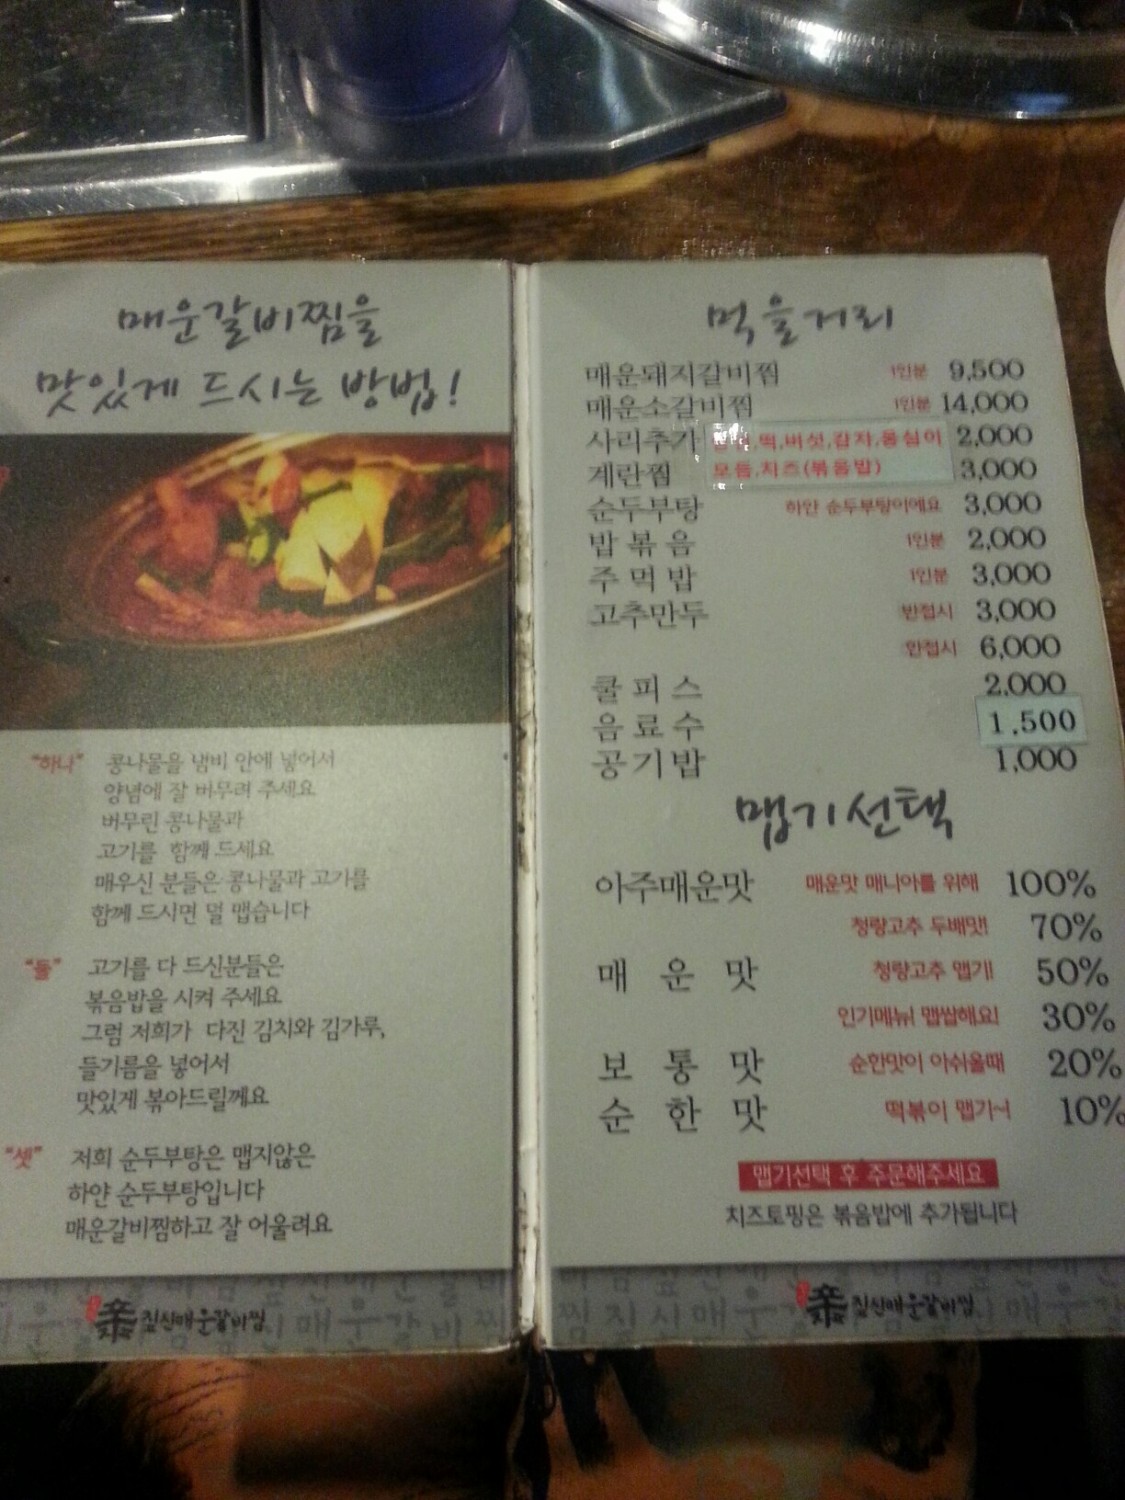 매운갈비찜을
맛있게 드시는 방법!
"하나" 콩나물을 냄비 안에 넣어서
양념에 잘 버무려 주세요
버무린 콩나물과
고기를 함께 드세요
매우신 분들은 콩나물과 고기를
함께 드시면 덜 맵습니다
"둘" 고기를 다 드신분들은
볶음밥을 시켜 주세요
그럼 저희가 다진 김치와 김가루,
들기름을 넣어서
맛있게 볶아드릴께요
"셋" 저희 순두부탕은 맵지않은
하얀 순두부탕입니다
매운갈비찜하고 잘 어울려요
짚신매운갈비찜
먹을거리
매운돼지갈비찜 1인분 9,500
매운소갈비찜 1인분 14,000
사리추가 떡,버섯,감자,옹심이 2,000
계란찜 모듬,치즈(볶음밥) 3,000
순두부탕 하얀 순두부탕이에요 3,000
밥볶음 1인분 2,000
주먹밥 1인분 3,000
고추만두 반접시 3,000
한접시 6,000
쿨피스 2,000
음료수 1,500
공기밥 1,000
맵기선택
아주매운맛 매운맛 매니아를 위해 100%
청량고추 두배맛! 70%
매운맛 청량고추 맵기! 50%
인기메뉴! 맵쌉해요! 30%
보통맛 순한맛이 아쉬울때 20%
순한맛 떡볶이 맵기~! 10%
맵기선택 후 주문해주세요
치즈토핑은 볶음밥에 추가됩니다
짚신매운갈비찜